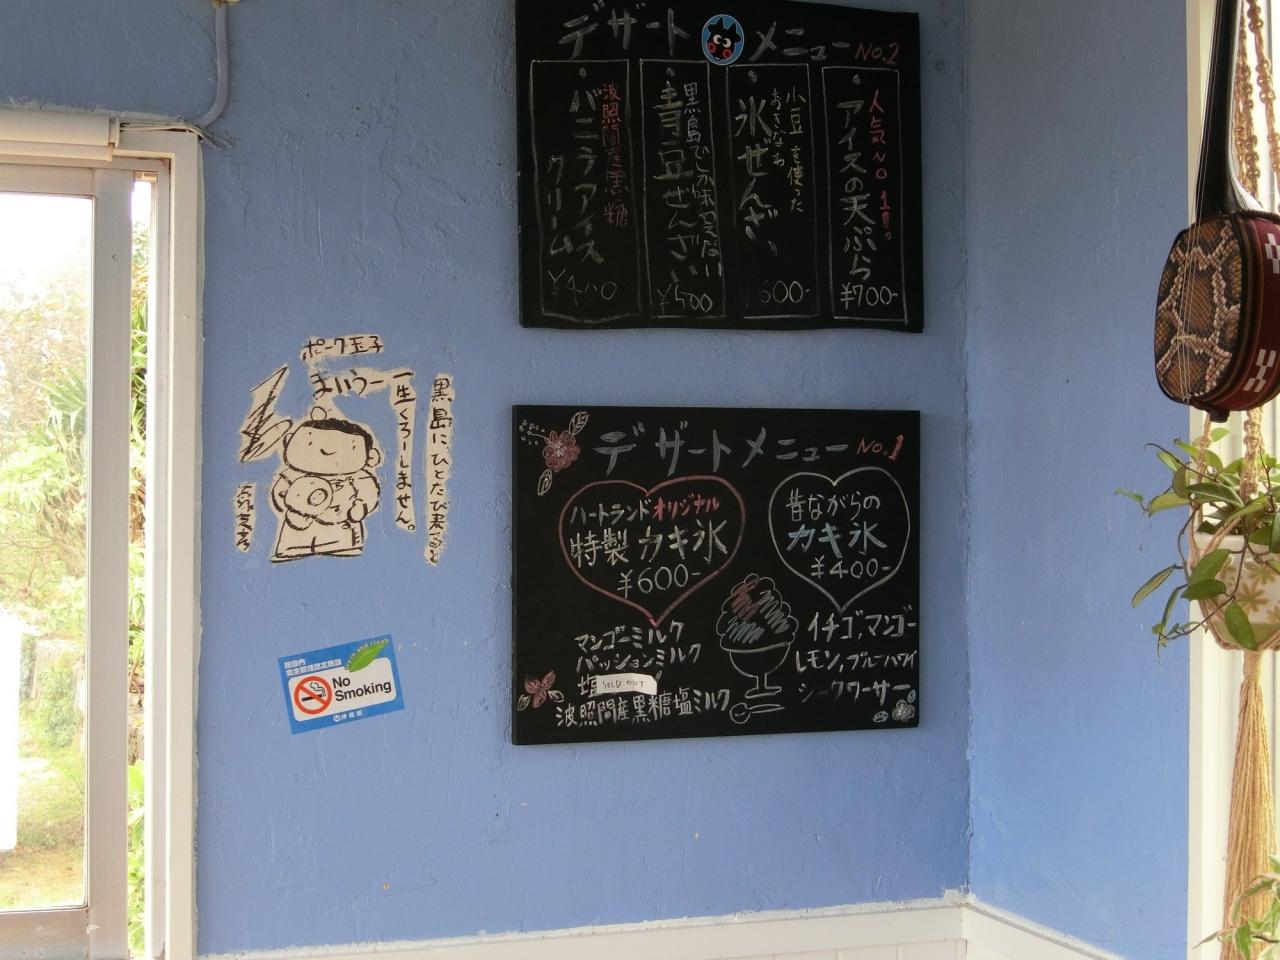 デザートメニュー No.2
人気NO1!!
アイスの天ぷら
¥700-
小豆を使った
氷ぜんざい
¥600-
黒島でしか味わえない
青豆ぜんざい
¥500
波照間産黒糖
バニラアイス
クリーム
¥400
デザートメニュー No.1
ハートランドオリジナル
特製カキ氷
¥600-
マンゴーミルク
パッションミルク
塩
SOLD OUT
波照間産黒糖塩ミルク
昔ながらの
カキ氷
¥400-
イチゴ,マンゴー
レモン,ブルーハワイ
シークワーサー
ポーク玉子
まいうー
黒島に、ひとたび来ると
一生くろーしません。
施設内
完全禁煙認定施設
No
Smoking
沖縄県